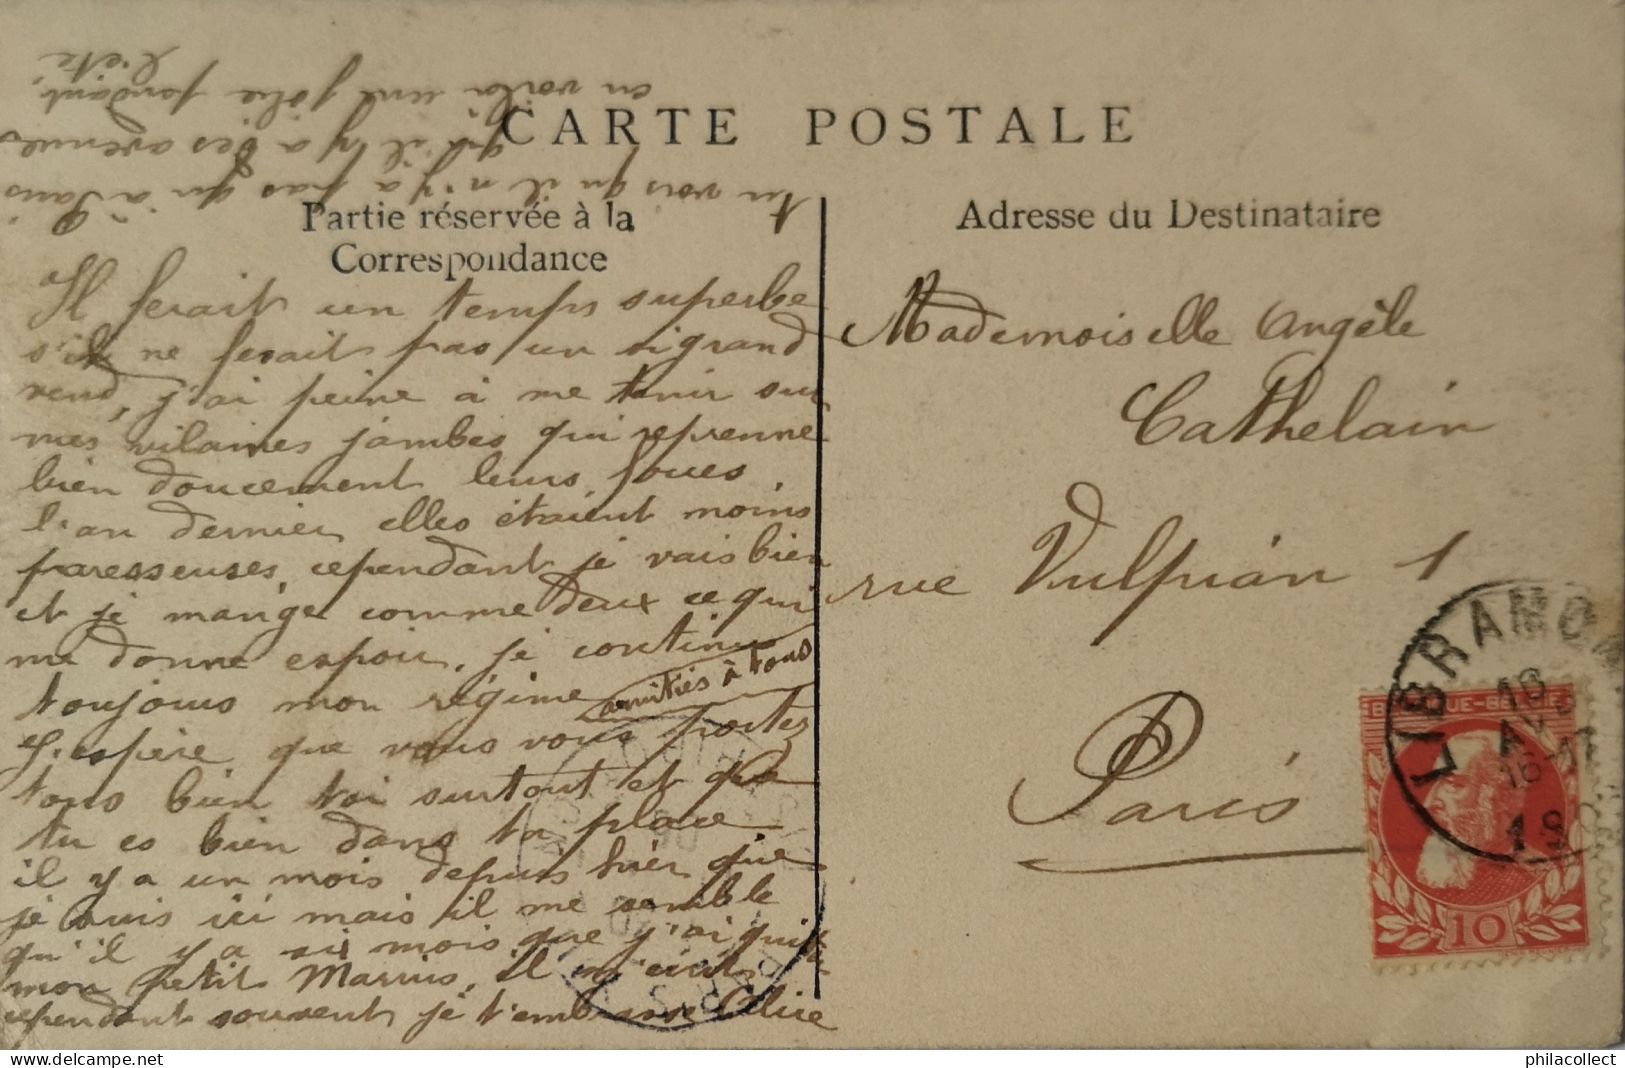 CARTE POSTALE
Partie réservée à la
Correspondance
Adresse du Destinataire
tu vois qu'il n'y a pas qu'à Paris
qu'il y a des avenues
en voila une jolie pendant
l'été
Il ferait un temps superbe
s'il ne ferait pas un si grand
vend, j'ai peine à me tenir sur
mes vilaines jambes qui reprenne
bien doucement leurs
l'an dernier elles étaient moins
paresseuses, cependant je vais bien
et je mange comme deux ce qui
me donne espoir, je continue
toujours mon régime
amitiés à tous
J'espère que vous vous portez
tous bien toi surtout et que
tu es bien dans ta place
il y a un mois depuis hier que
je suis ici mais il me semble
qu'il y a six mois que j'ai quitté
mon petit Marius, il m'écrit
cependant souvent je t'embrasse Alice
Mademoiselle Angèle
Cathelain
rue Vulpian 1
Paris
LIBRAMON
18
AV
16-17
19
BELGIQUE-BELGIË
10
philacollect